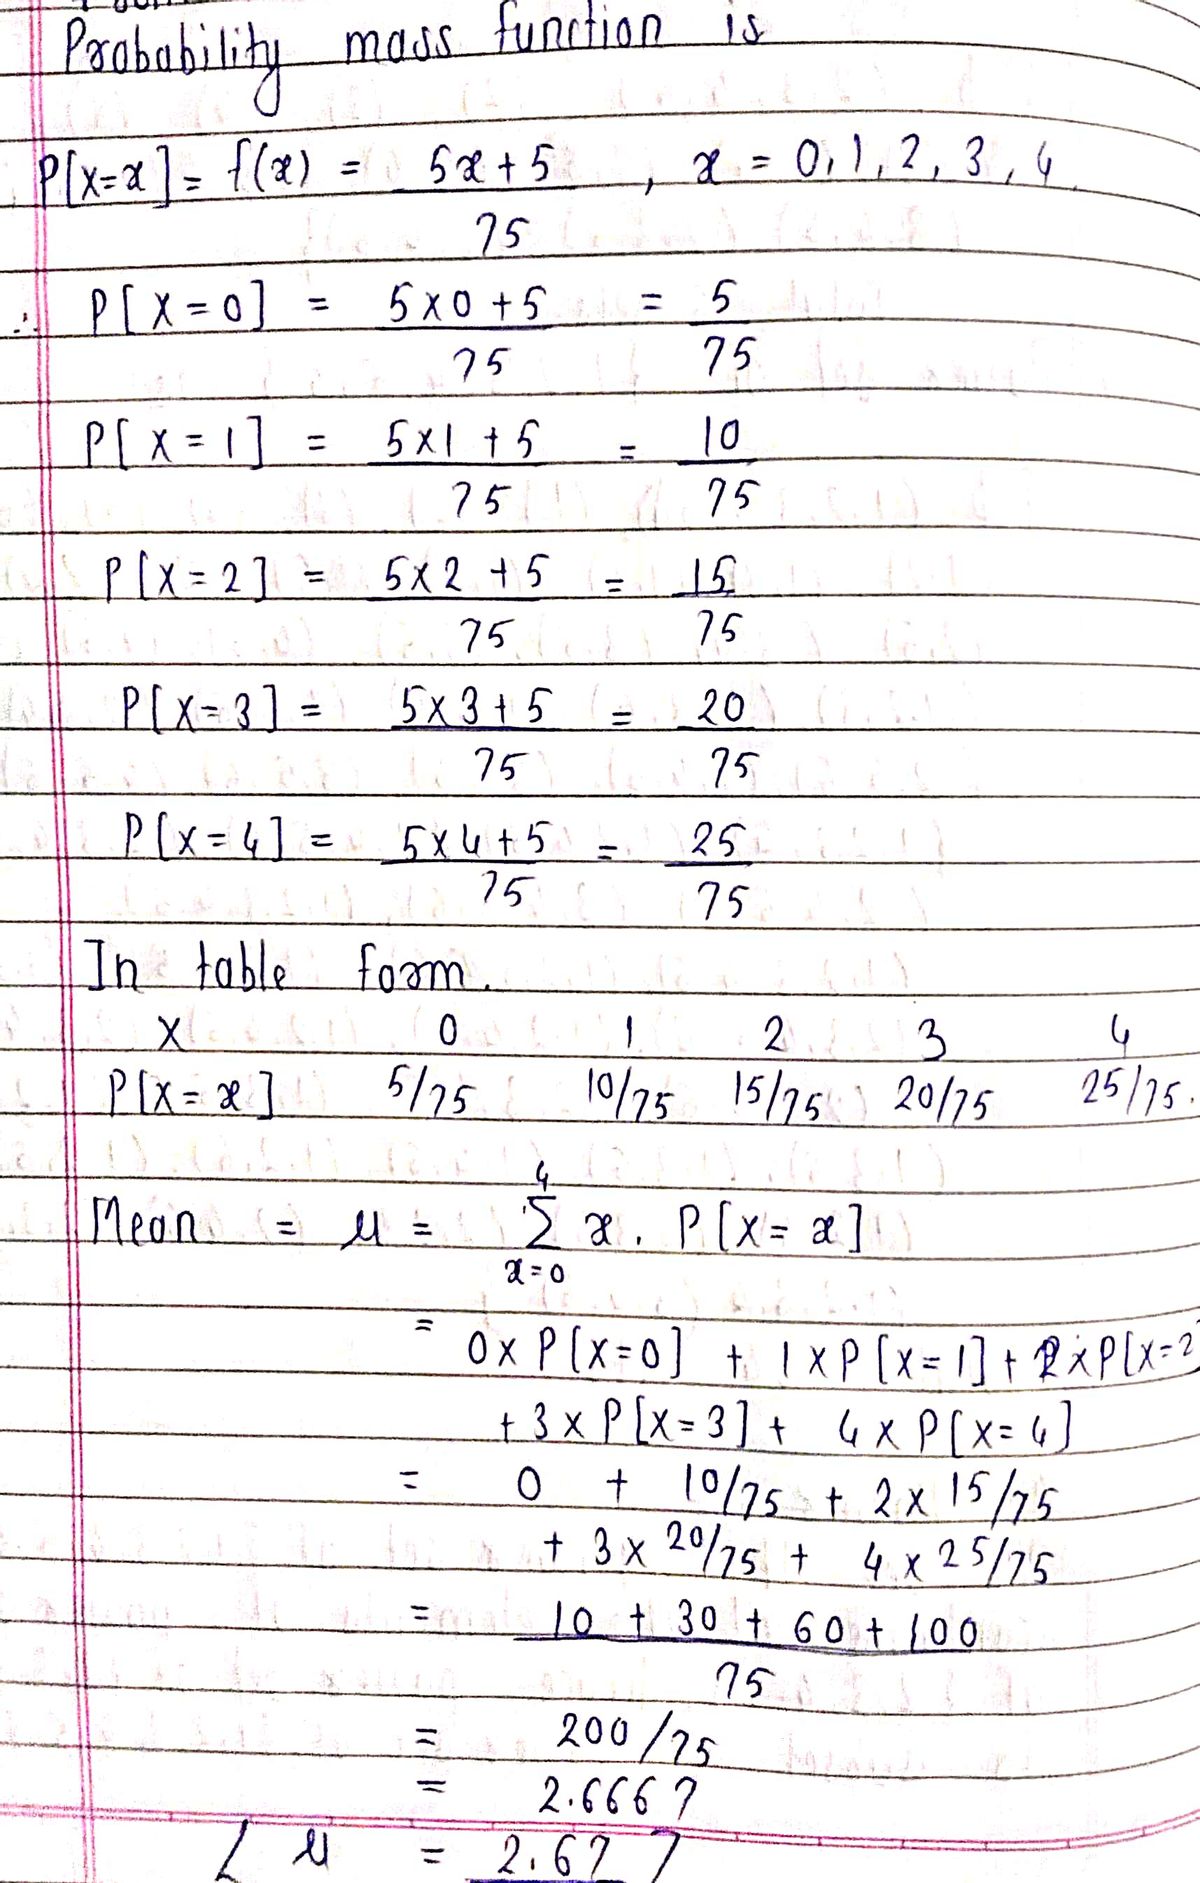 Probability mass function is
P[X=x] = f(x) = 5x+5 / 75 , x = 0, 1, 2, 3, 4.
∴ P[X=0] = 5×0+5 / 75 = 5 / 75
P[X=1] = 5×1+5 / 75 = 10 / 75
P[X=2] = 5×2+5 / 75 = 15 / 75
P[X=3] = 5×3+5 / 75 = 20 / 75
P[X=4] = 5×4+5 / 75 = 25 / 75
In table form.
X 0 1 2 3 4
P[X=x] 5/75 10/75 15/75 20/75 25/75.
Mean = μ = 4 Σ x=0 x. P[X=x]
= 0×P[X=0] + 1×P[X=1] + 2×P[X=2
+ 3×P[X=3] + 4×P[X=4]
= 0 + 10/75 + 2×15/75
+ 3×20/75 + 4×25/75
= 10 + 30 + 60 + 100 / 75
= 200/75
= 2.6667
μ = 2.67